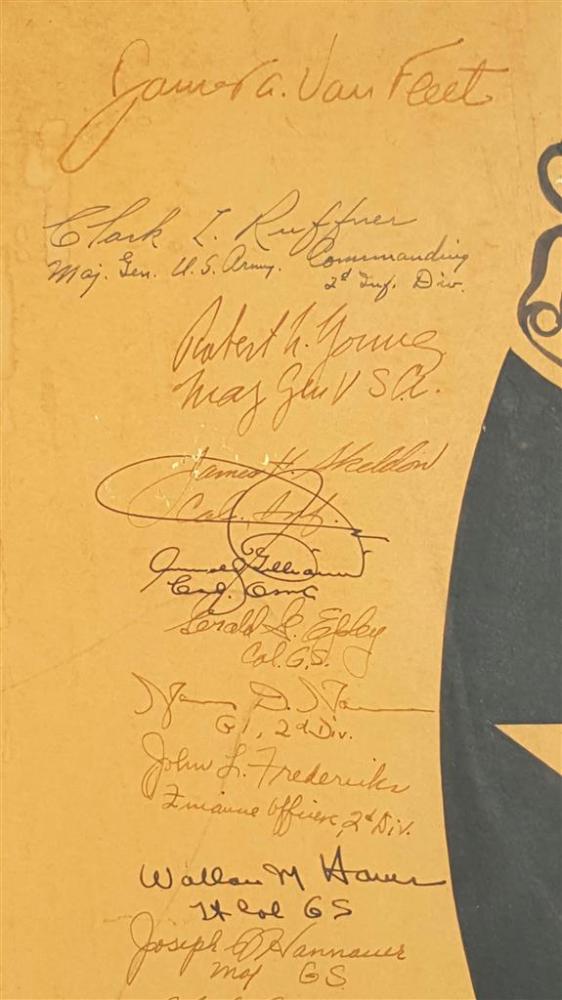 James A. Van Fleet
Clark L. Ruffner
Maj. Gen. U.S. Army. Commanding
2d Inf. Div.
Robert N. Young
Maj Gen USA.
James H. Skeldon
Col. Inf.
Col. QMC
Gerald G. Epley
Col. G.S.
G1, 2d Div.
John L. Fredericks
Finance Officer, 2d Div.
M
Lt Col GS
Joseph Hannauer
Maj GS